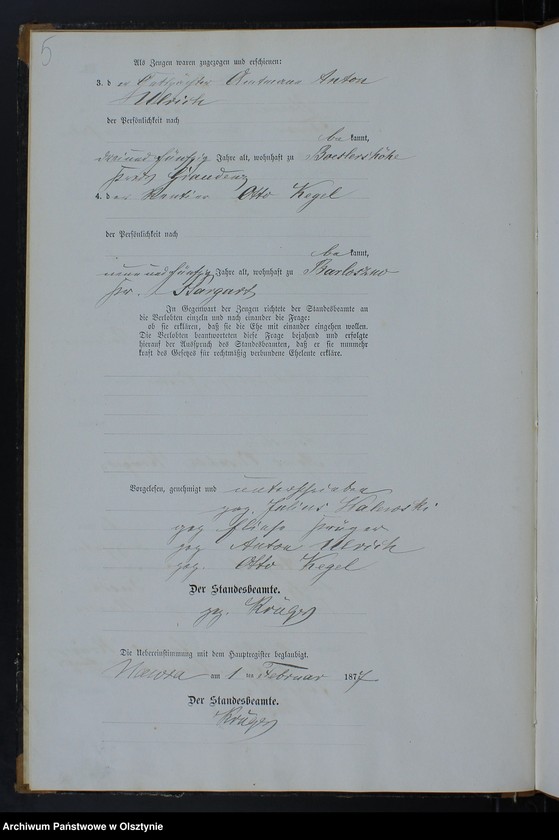 5
Als Zeugen waren zugezogen und erschienen:
3. d er Amtmann Anton
Ulrich
der Persönlichkeit nach
be kannt,
dreiundfünfzig Jahre alt, wohnhaft zu Boeslershöhe
Graudenz
4. d er Rentier Otto Kegel
der Persönlichkeit nach
be kannt,
neunundfünfzig Jahre alt, wohnhaft zu
In Gegenwart der Zeugen richtete der Standesbeamte an
die Verlobten einzeln und nach einander die Frage:
ob sie erklären, daß sie die Ehe mit einander eingehen wollen.
Die Verlobten beantworteten diese Frage bejahend und erfolgte
hierauf der Ausspruch des Standesbeamten, daß er sie nunmehr
kraft des Gesetzes für rechtmäßig verbundene Eheleute erkläre.
Vorgelesen, genehmigt und unterschrieben
gez. Julius
gez.
gez. Anton Ulrich
gez. Otto Kegel
Der Standesbeamte.
gez. Krüger
Die Uebereinstimmung mit dem Hauptregister beglaubigt.
Nawra am 1 ten Februar 1877
Der Standesbeamte.
Krüger
Archiwum Państwowe w Olsztynie